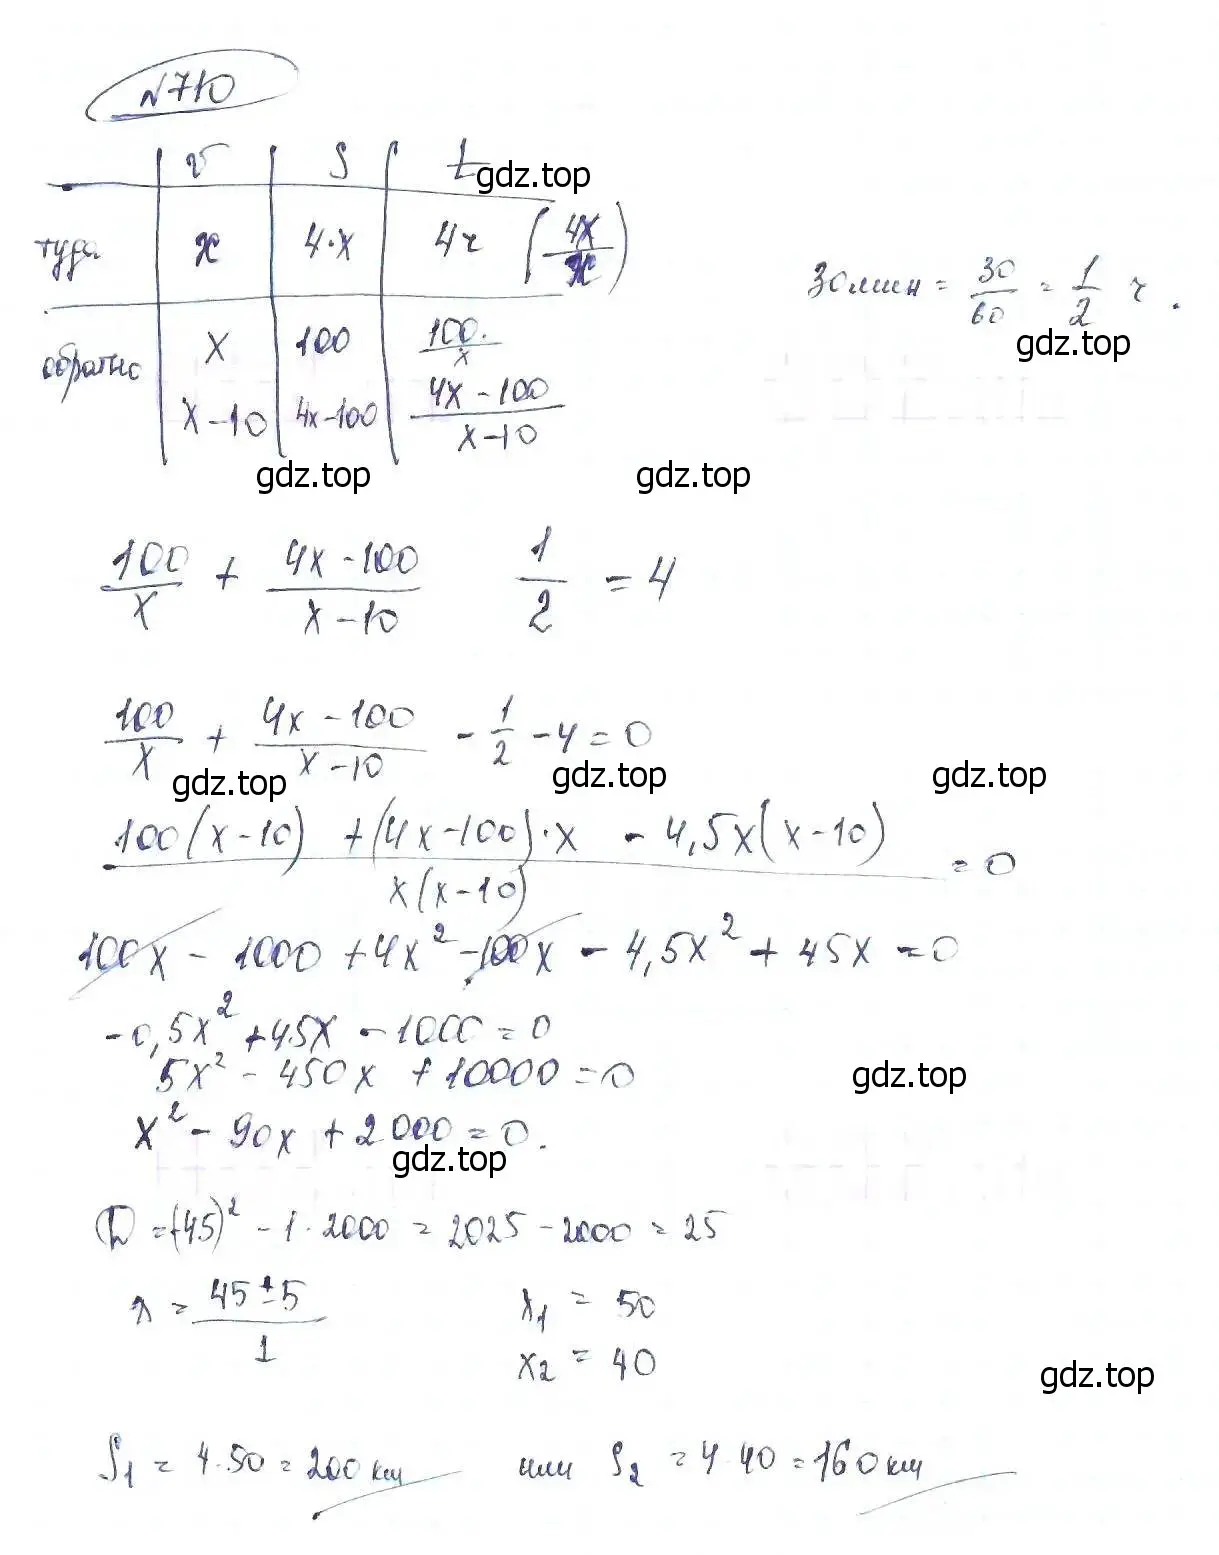 №710
v S t
gdz.top
туда x 4·x 4ч (4x/x)
30мин = 30/60 = 1/2 ч.
gdz.top
обратно x 100 100/x
x-10 4x-100 (4x-100)/(x-10)
gdz.top gdz.top
100/x + (4x-100)/(x-10) 1/2 = 4
100/x + (4x-100)/(x-10) - 1/2 - 4 = 0
gdz.top gdz.top gdz.top
(100(x-10) + (4x-100)·x - 4,5x(x-10))/(x(x-10)) = 0
100x - 1000 + 4x² - 100x - 4,5x² + 45x = 0
-0,5x² + 45x - 1000 = 0
5x² - 450x + 10000 = 0
gdz.top
x² - 90x + 2000 = 0.
gdz.top
D = (-45)² - 1·2000 = 2025 - 2000 = 25
x = (45±5)/1 x₁ = 50
x₂ = 40
gdz.top
S₁ = 4·50 = 200 км или S₂ = 4·40 = 160 км